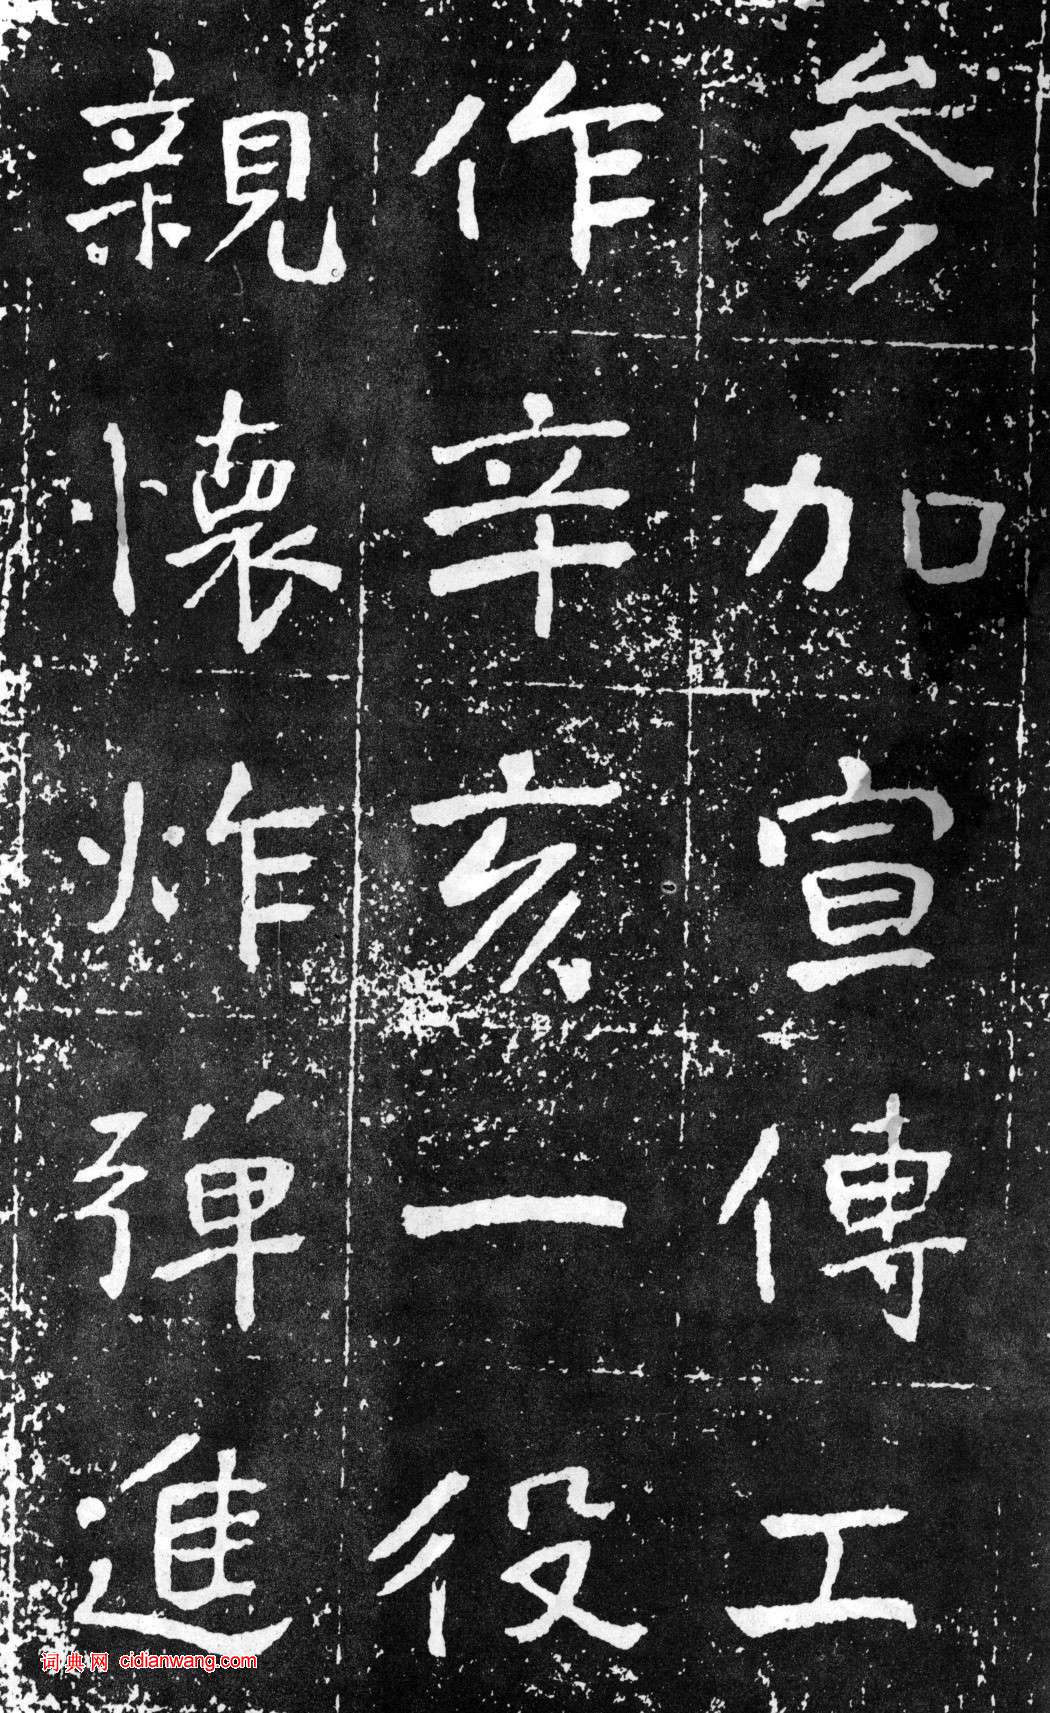 参加宣傳工
作辛亥一役
親懷炸弾進
词典网 cidianwang.com